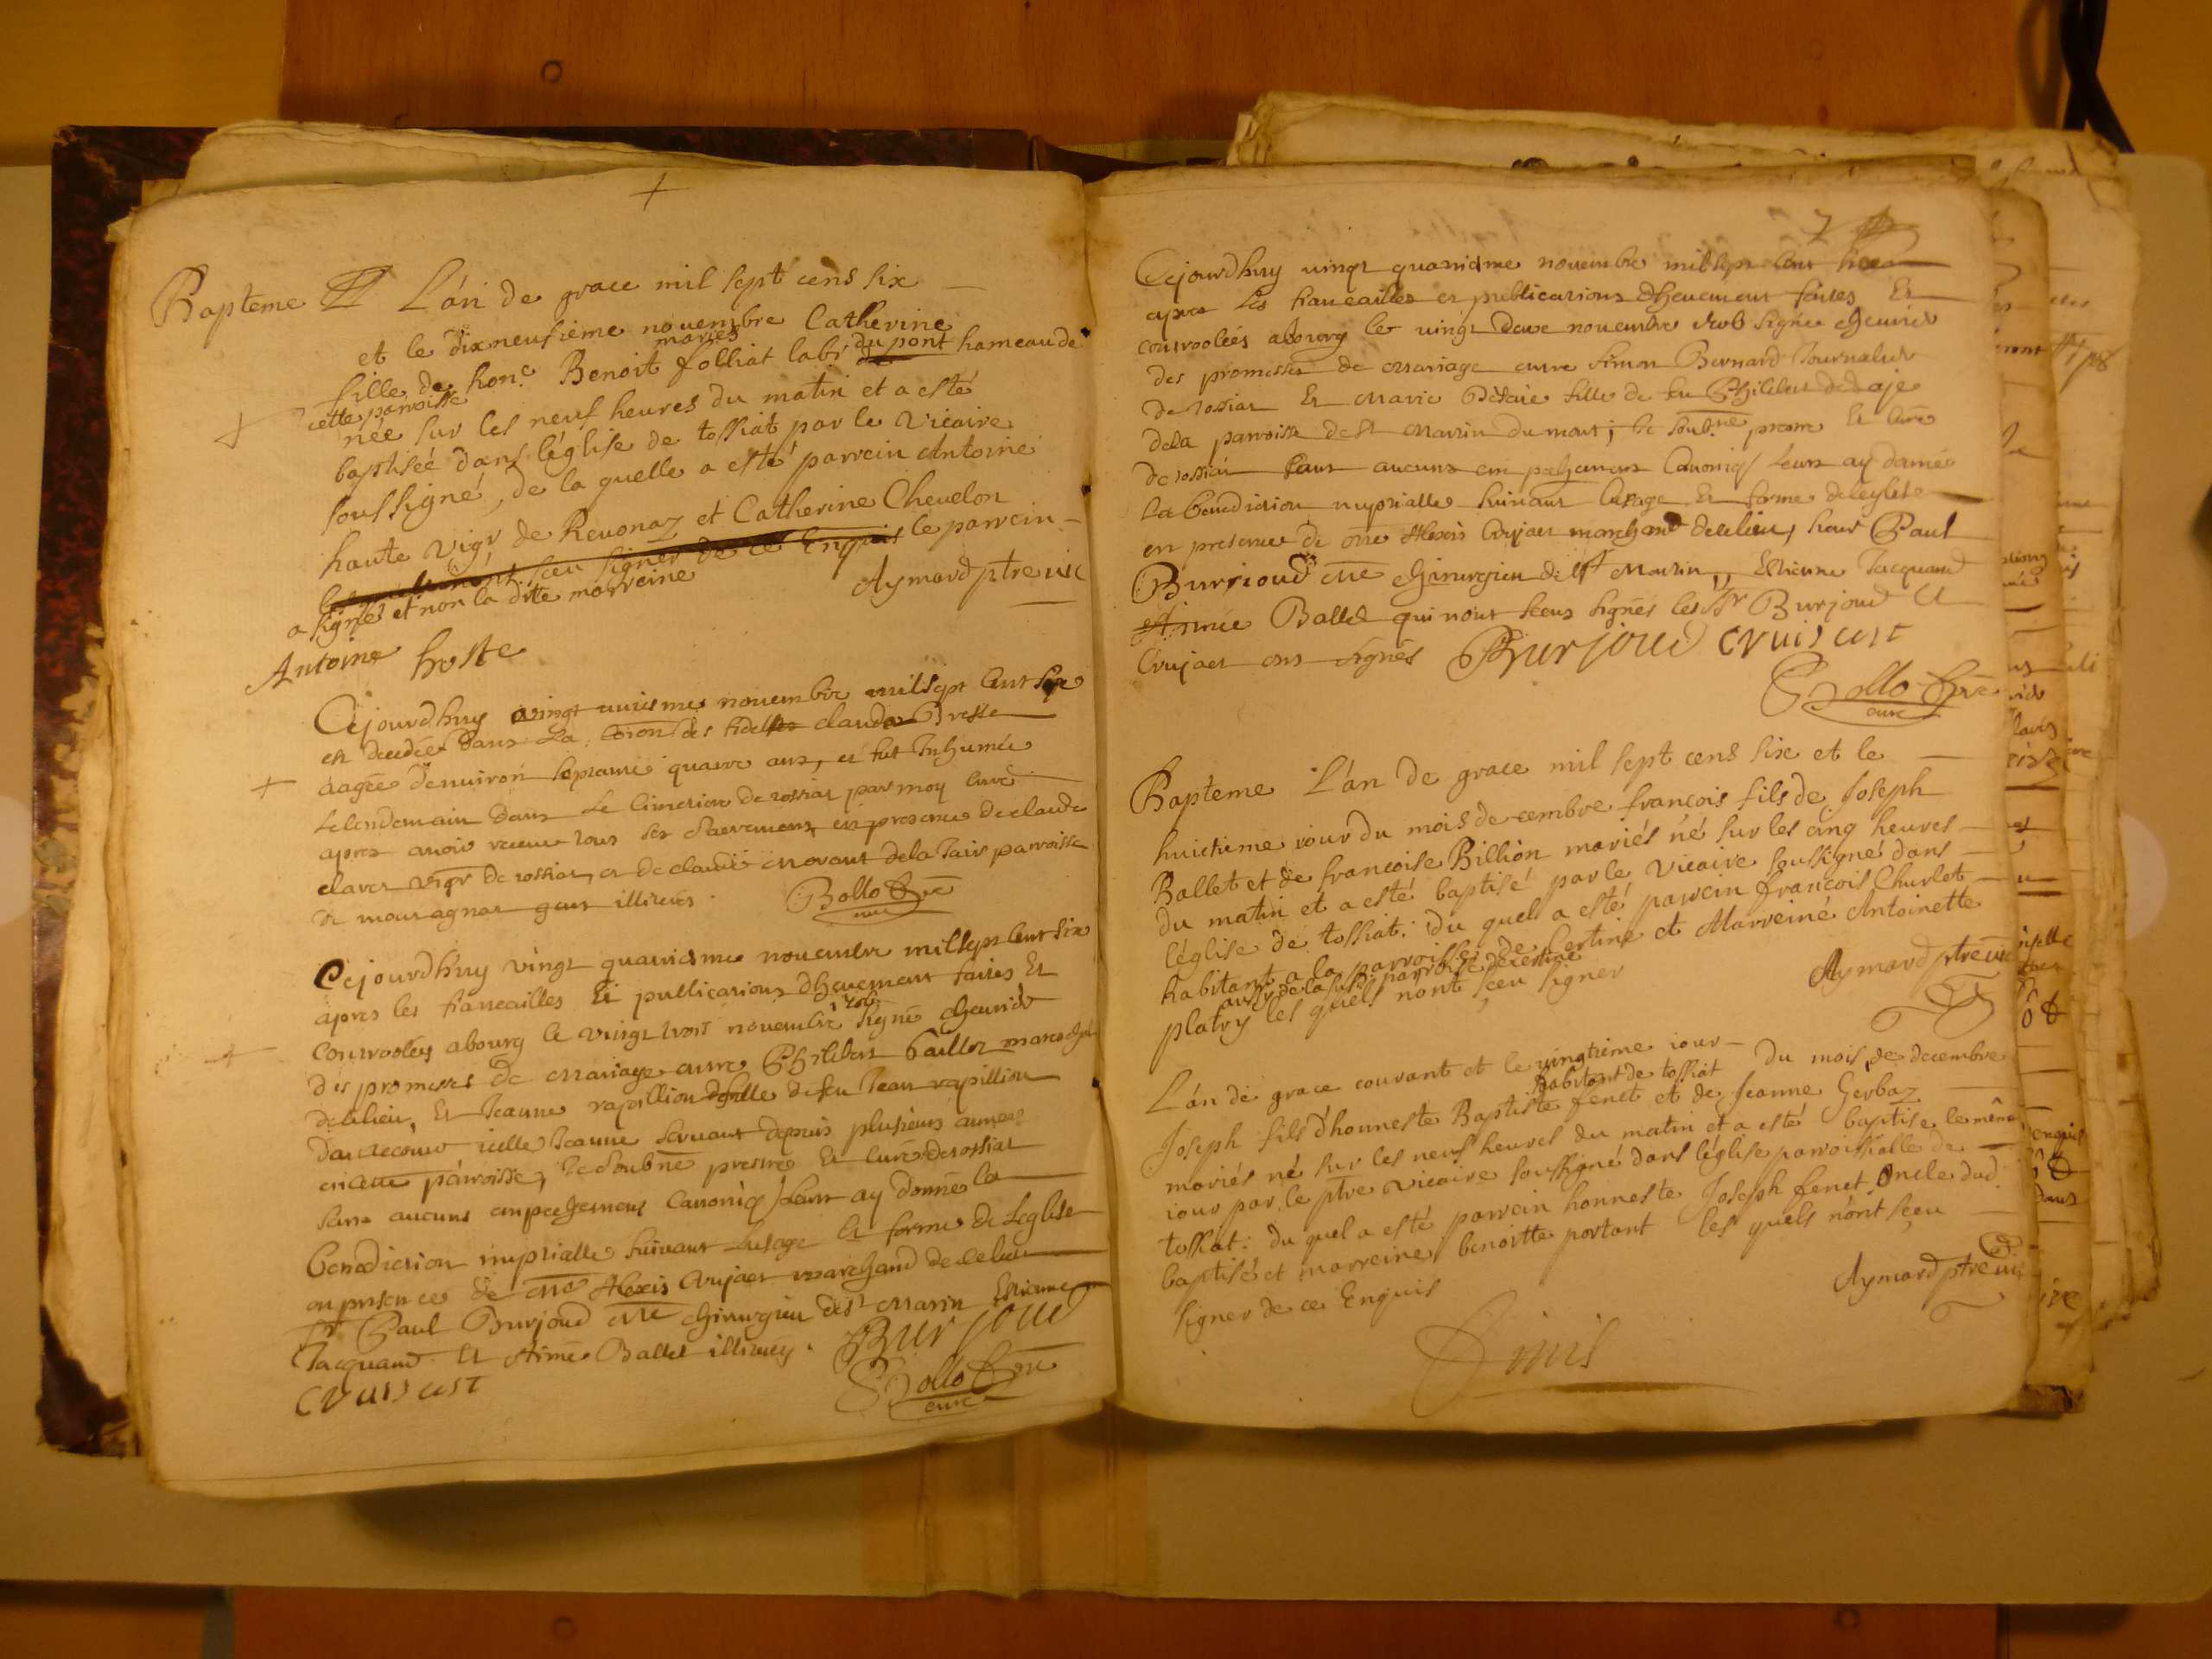 Bapteme L'an de grace mil sept cens six
et le dixneufieme nouembre Catherine
fille de hon.e Benoit folliat labr du pont hameau de
mariés
cette parroisse
née sur les neuf heures du matin et a esté
baptisée dans l'église de tossiat par le vicaire
soussigné, de la quelle a esté parrein Antoine
hoste vigr, de Reuonaz et Catherine Cheuelon
sceu signer de ce Enquis le parrein
a signés et non la ditte marreine Aymard ptre uic
Antoine hoste
Cejourdhuy vingt nouembre mil sept cent six
est decedée dans la des fidelles claudo Bresse
aagée denuiron septante quatre ans, et fut Inhumée
le lendemain dans le Cimetiere de tossiat par moy curé
apres auoir receue tous ses sacremens, en presence de claude
claret vigr de tossiat, et de claude morant de la parroisse
de montagnat gens illiterés. Bollo
Cejourdhuy vingt quatriesme nouembre mil sept cent six
apres les fiancailles et publications dheuement faites Et
controolées abourg le vingt trois nouembre 1706 signé cheurier
des promesses de mariage entre Philibert Baillet marechal
de ce lieu, Et Jeanne rapillion fille de feu Jean rapillion
icelle Jeanne seruant depuis plusieurs années
en cette parroisse, Je soubné prestre Et curé de tossiat
sans aucuns empechemens Canoniq leurs ay donné la
benediction nuptialle suiuant lusage Et forme de Leglise
en presence de me Alexis Crujaet marchand de ce lieu
sr Paul Burjoud me chirurgien de st Martin Estienne
Jacquand Et Aimé Ballet illiterés. Burjoud
Cruisast Bollo
curé
7
Cejourdhuy vingt quatriesme nouembre mil sept cent six
apres les fiancailles et publications dheuement faites Et
controolées abourg le vingt deux nouembre signée cheurier
des promesses de mariage entre Simon Bernard Journalier
de tossiat Et Marie fille de feu Philibert
de la parroisse de st Martin du mont; Je soub.né prestre Et curé
de tossiat sans aucuns empechemens Canoniq leurs ay donné
la benediction nuptialle suiuant lusage Et forme de leglise
en presence de me Alexis Crujaet marchand de ce lieu, sieur Paul
Burjoud me chirurgien de st Martin, Estienne Jacquand
Aimée Ballet qui nont sceus signés les sr Burjoud et
Crujaet ont signés Burjoud Cruisast
Bollo
curé
Bapteme L'an de grace mil sept cens six et le
huictieme iour du mois de cembre francois fils de Joseph
Ballet et de francoise Billion mariés né sur les cinq heures
du matin et a esté baptisé par le vicaire soussigné dans
l'église de tossiat: du quel a esté parrein francois Churlet
habitant a la parroisse de Certine et Marreine Antoinette
aussy de la susd. parroisse de certine
platry les quels nont sceu signer Aymard ptre uic
L'an de grace courant et le vingtieme iour du mois de decembre
habitant de tossiat
Joseph fils d'honneste Baptiste fenet et de Jeanne Gerbaz
mariés né sur les neuf heures du matin et a esté baptise le même
iour par le ptre vicaire soussigné dans l'église parroissialle de
tossiat: du quel a esté parrein honneste Joseph fenet Oncle dud.
baptisé et marreine benoitte portant les quels n'ont sceu
signer de ce Enquis Aymard ptre uic
Finis